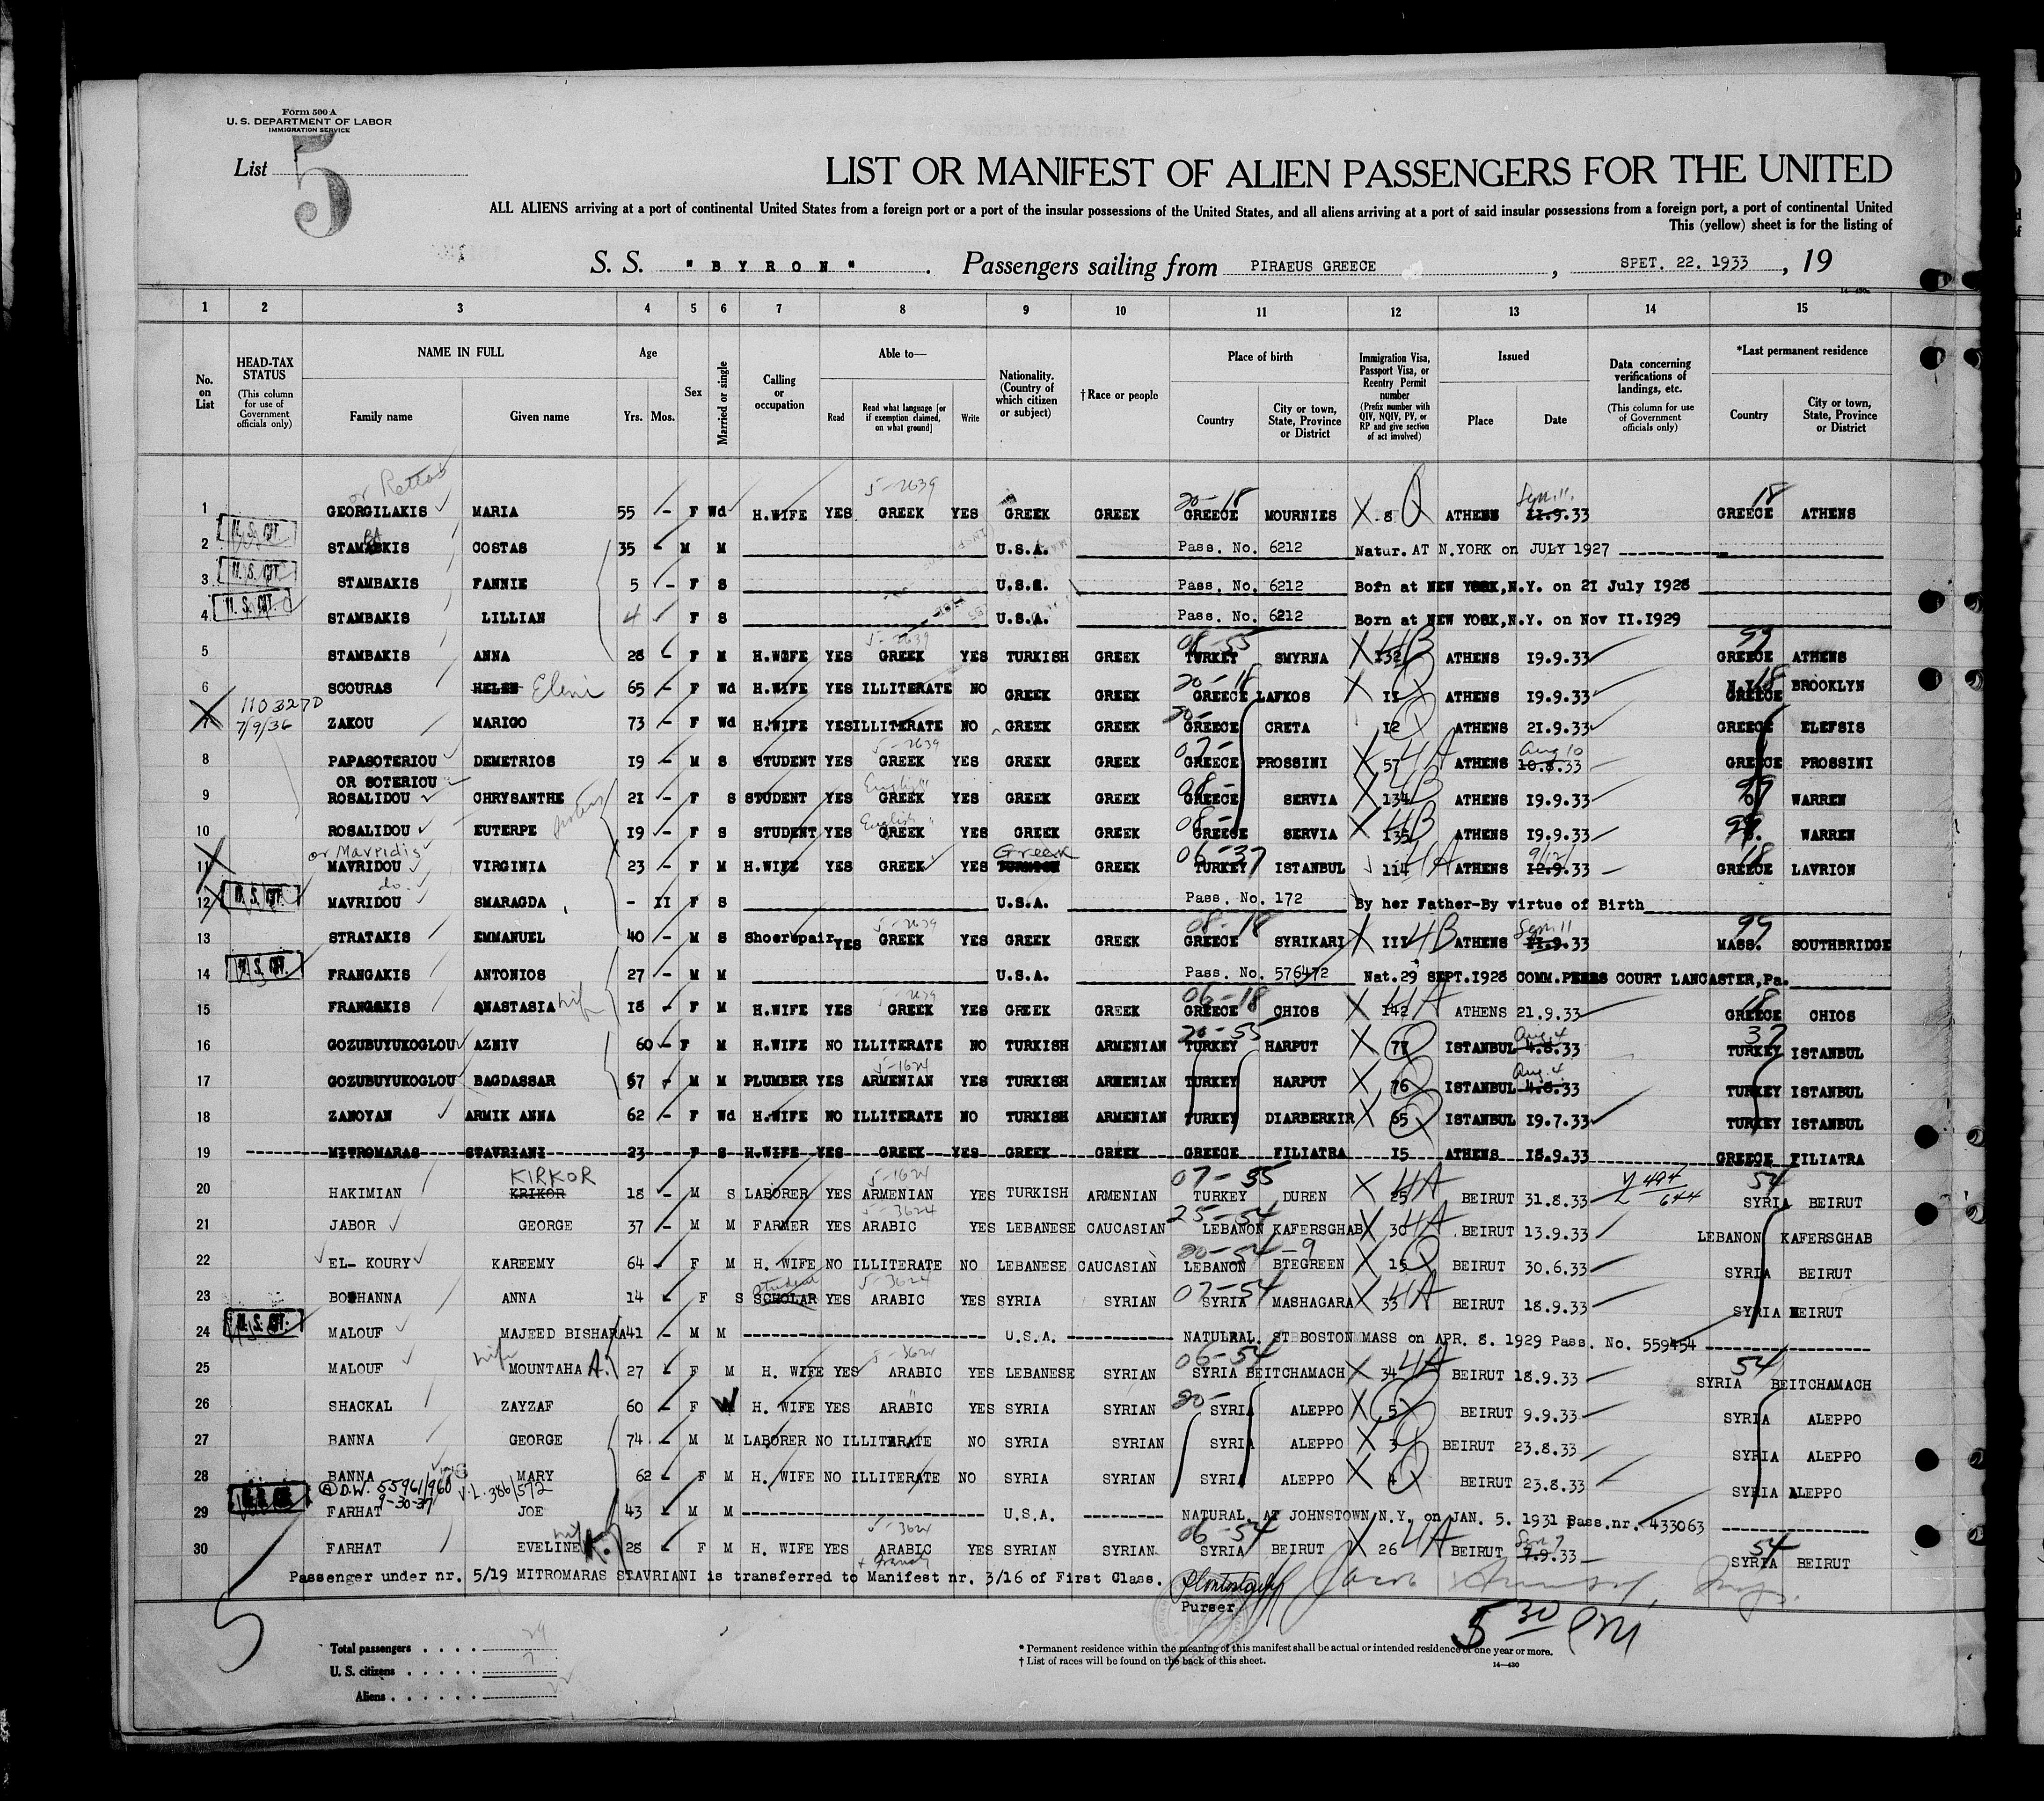 Form 500 A
U. S. DEPARTMENT OF LABOR
IMMIGRATION SERVICE
List 5
LIST OR MANIFEST OF ALIEN PASSENGERS FOR THE UNITED
ALL ALIENS arriving at a port of continental United States from a foreign port or a port of the insular possessions of the United States, and all aliens arriving at a port of said insular possessions from a foreign port, a port of continental United
This (yellow) sheet is for the listing of
S. S. "BYRON" . Passengers sailing from PIRAEUS GREECE , SPET. 22. 1933 , 19
1 2 3 4 5 6 7 8 9 10 11 12 13 14 15
No. on List
HEAD-TAX STATUS (This column for use of Government officials only)
NAME IN FULL
Family name Given name
Age
Yrs. Mos.
Sex
Married or single
Calling or occupation
Able to—
Read Read what language [or if exemption claimed, on what ground] Write
Nationality. (Country of which citizen or subject)
†Race or people
Place of birth
Country City or town, State, Province or District
Immigration Visa, Passport Visa, or Reentry Permit number (Prefix number with QIV, NQIV, PV, or RP and give section of act involved)
Issued
Place Date
Data concerning verifications of landings, etc. (This column for use of Government officials only)
*Last permanent residence
Country City or town, State, Province or District
or Rettos 5-2639 20-18 Sep. 11. 18
1 GEORGILAKIS MARIA 55 - F Wd H.WIFE YES GREEK YES GREEK GREEK GREECE MOURNIES X 8 Q ATHENS 11.9.33 GREECE ATHENS
2 U. S. CIT. STAMBAKIS COSTAS 35 - M M U.S.A. Pass. No. 6212 Natur. AT N.YORK on JULY 1927
3 U. S. CIT. STAMBAKIS FANNIE 5 - F S U.S.A. Pass. No. 6212 Born at NEW YORK,N.Y. on 21 July 1928
4 U. S. CIT. STAMBAKIS LILLIAN 4 F S U.S.A. Pass. No. 6212 Born at NEW YOSK,N.Y. on Nov II.1929
5-2639 08-55 99
5 STAMBAKIS ANNA 28 F M H.WIFE YES GREEK YES TURKISH GREEK TURKEY SMYRNA X 132 4B ATHENS 19.9.33 GREECE ATHENS
20-18 N.Y. 18
6 SCOURAS HELEN Eleni 65 - F Wd H.WIFE YES ILLITERATE NO GREEK GREEK GREECE LAFKOS X II Q ATHENS 19.9.33 GREECE BROOKLYN
110327D
7/9/36
7 ZAKOU MARIGO 73 - F Wd H.WIFE YES ILLITERATE NO GREEK GREEK 20- GREECE CRETA 12 Q ATHENS 21.9.33 GREECE ELEFSIS
5-2639 07- Aug 10
8 PAPASOTERIOU DEMETRIOS 19 - M S STUDENT YES GREEK YES GREEK GREEK GREECE PROSSINI X 57 4A ATHENS 10.8.33 GREECE PROSSINI
OR SOTERIOU English 08- 99
9 ROSALIDOU CHRYSANTHE 21 - F S STUDENT YES GREEK YES GREEK GREEK GREECE SERVIA X 134 4B ATHENS 19.9.33 WARREN
sisters English 08-
10 ROSALIDOU EUTERPE 19 - F S STUDENT YES GREEK YES GREEK GREEK GREECE SERVIA X 135 4B ATHENS 19.9.33 WARREN
or Mavridis Greek 06-37 9/12/ 18
11 MAVRIDOU VIRGINIA 23 - F M H.WIFE YES GREEK YES TURKISH GREEK TURKEY ISTANBUL 114 4A ATHENS 12.9.33 GREECE LAVRION
do.
12 U. S. CIT. MAVRIDOU SMARAGDA - II F S U.S.A. Pass. No. 172 By her Father-By virtue of Birth
5-2639 08-18 Sep. 11 99
13 STRATAKIS EMMANUEL 40 - M S Shoerepair YES GREEK YES GREEK GREEK GREECE SYRIKARI X III 4B ATHENS 11.9.33 MASS. SOUTHBRIDGE
14 U. S. CIT. FRANGAKIS ANTONIOS 27 - M M U.S.A. Pass. No. 576472 Nat.29 SEPT.1928 COMM.PEERS COURT LANCASTER,Pa.
5-2639 06-18 18
15 FRANGAKIS ANASTASIA wife 18 - F M H.WIFE YES GREEK YES GREEK GREEK GREECE CHIOS X 142 4A ATHENS 21.9.33 GREECE CHIOS
20-55 Aug. 4 37
16 GOZUBUYUKOGLOU AZNIV 60 - F M H.WIFE NO ILLITERATE NO TURKISH ARMENIAN TURKEY HARPUT X 77 Q ISTANBUL 4.8.33 TURKEY ISTANBUL
5-1624 Aug. 4
17 GOZUBUYUKOGLOU BAGDASSAR 67 - M M PLUMBER YES ARMENIAN YES TURKISH ARMENIAN TURKEY HARPUT X 76 Q ISTANBUL 4.8.33 TURKEY ISTANBUL
18 ZANOYAN ARMIK ANNA 62 - F Wd H.WIFE NO ILLITERATE NO TURKISH ARMENIAN TURKEY DIARBERKIR X 65 Q ISTANBUL 19.7.33 TURKEY ISTANBUL
19 MITROMARAS STAVRIANI 23 F S H.WIFE YES GREEK YES GREEK GREEK GREECE FILIATRA 15 ATHENS 18.9.33 GREECE FILIATRA
KIRKOR 5-1624 07-55 VL 494/644 54
20 HAKIMIAN KRIKOR 18 - M S LABORER YES ARMENIAN YES TURKISH ARMENIAN TURKEY DUREN X 25 4A BEIRUT 31.8.33 SYRIA BEIRUT
5-3624 25-54
21 JABOR GEORGE 37 - M M FARMER YES ARABIC YES LEBANESE CAUCASIAN LEBANON KAFERSGHAB X 30 4A BEIRUT 13.9.33 LEBANON KAFERSGHAB
20-54-9
22 EL- KOURY KAREEMY 64 - F M H. WIFE NO ILLITERATE NO LEBANESE CAUCASIAN LEBANON BTEGREEN X 15 Q BEIRUT 30.6.33 SYRIA BEIRUT
Student 5-3624 07-54
23 BOSHANNA ANNA 14 F S SCHOLAR YES ARABIC YES SYRIA SYRIAN SYRIA MASHAGARA X 33 4A BEIRUT 18.9.33 SYRIA BEIRUT
24 U. S. CIT. MALOUF MAJEED BISHARA 41 - M M U.S.A. NATULRAL. ST BOSTON MASS on APR. 8. 1929 Pass. No. 559454
wife 5-3624 06-54 54
25 MALOUF MOUNTAHA A. 27 F M H. WIFE YES ARABIC YES LEBANESE SYRIAN SYRIA BEITCHAMACH X 34 4A BEIRUT 18.9.33 SYRIA BEITCHAMACH
20-
26 SHACKAL ZAYZAF 60 F W H. WIFE YES ARABIC YES SYRIA SYRIAN SYRIA ALEPPO X 5 Q BEIRUT 9.9.33 SYRIA ALEPPO
27 BANNA GEORGE 74 M M LABORER NO ILLITERATE NO SYRIA SYRIAN SYRIA ALEPPO X 3 Q BEIRUT 23.8.33 SYRIA ALEPPO
28 BANNA MARY 62 F M H. WIFE NO ILLITERATE NO SYRIA SYRIAN SYRIA ALEPPO X 4 Q BEIRUT 23.8.33 SYRIA ALEPPO
D.W. 55961/960 V.L. 386/572
9-30-37
29 FARHAT JOE 43 M M U.S.A. NATURAL. AT JOHNSTOWN N.Y. on JAN. 5. 1931 Pass.nr. 433063
wife 5-3624 06-54 Sep 7 54
30 FARHAT EVELINE K. 28 F M H. WIFE YES ARABIC YES SYRIAN SYRIAN SYRIA BEIRUT X 26 4A BEIRUT 7.9.33 SYRIA BEIRUT
+ French
Passenger under nr. 5/19 MITROMARAS STAVRIANI is transferred to Manifest nr. 3/16 of First Class.
Purser
5 30 PM
5
Total passengers . . . . 29
U. S. citizens . . . . . 7
Aliens . . . . . . 22
* Permanent residence within the meaning of this manifest shall be actual or intended residence of one year or more.
† List of races will be found on the back of this sheet.
14—430